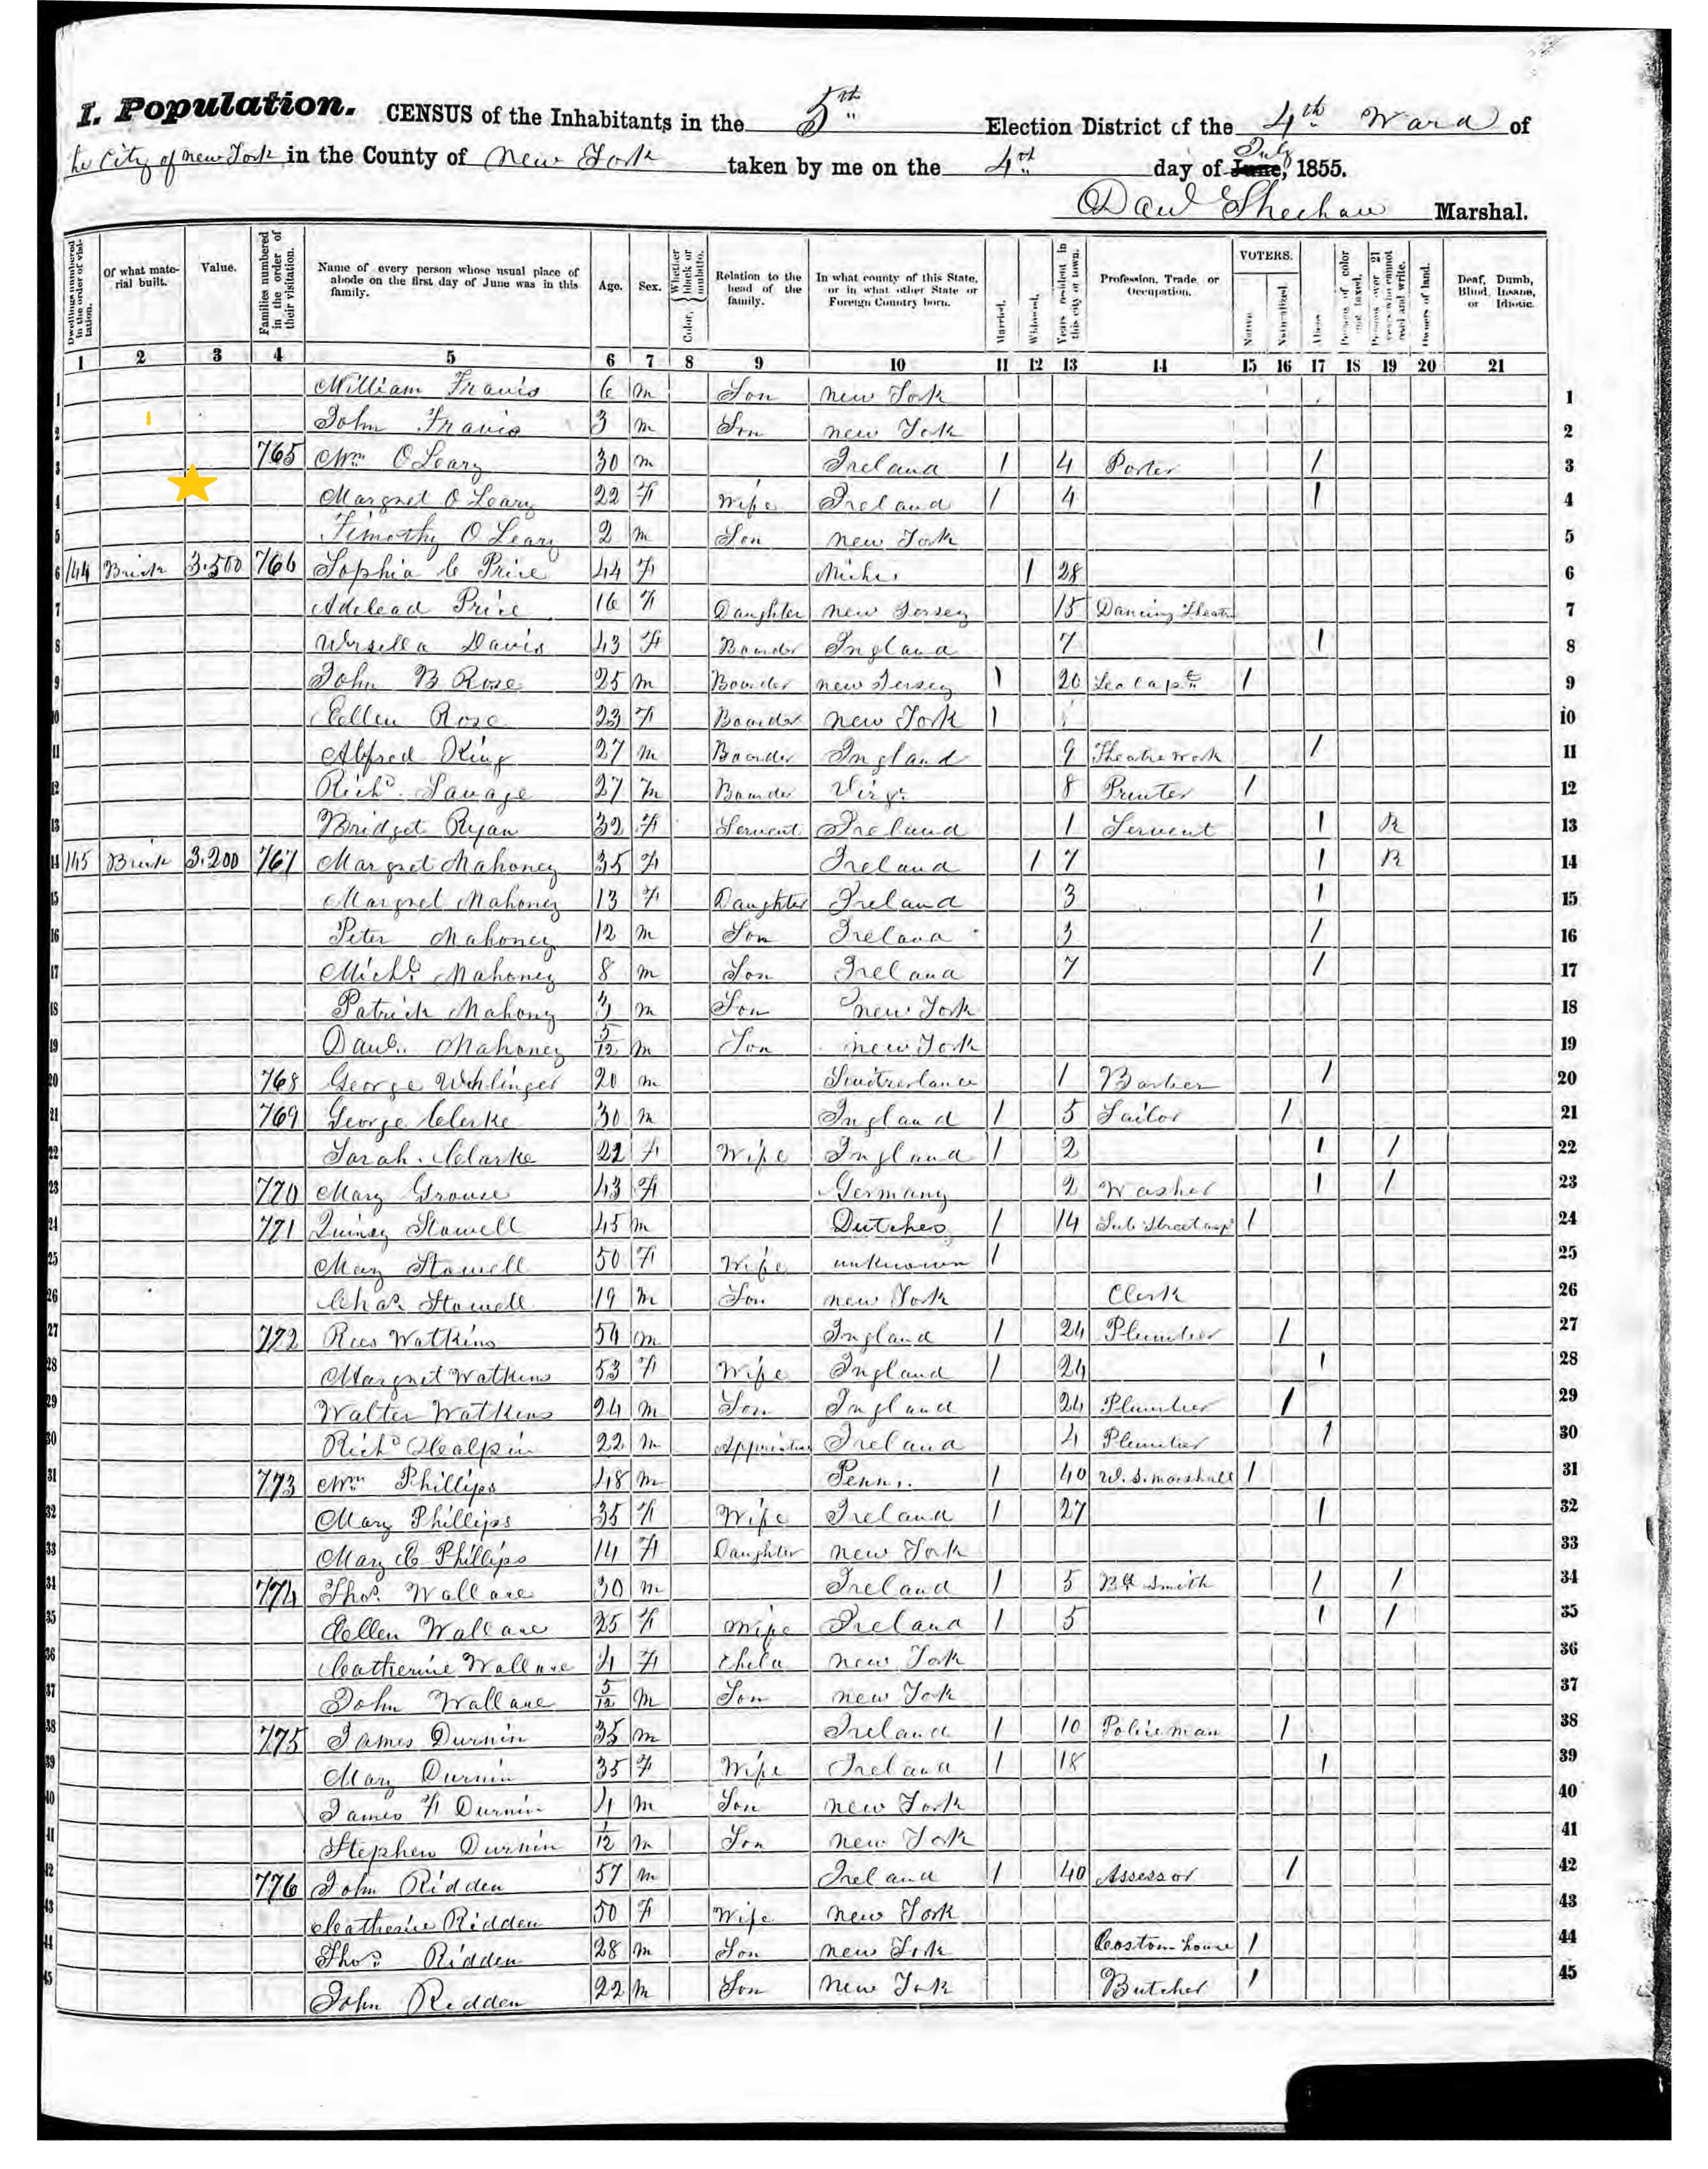 I. Population. CENSUS of the Inhabitants in the 5th Election District of the 4th Ward of
the City of New York in the County of New York taken by me on the 4th day of June, July 1855.
Danl Sheehan Marshal.
Dwellings numbered in the order of visitation. Of what material built. Value. Families numbered in the order of their visitation. Name of every person whose usual place of abode on the first day of June was in this family. Age. Sex. Color, Whether black or mulatto. Relation to the head of the family. In what county of this State, or in what other State or Foreign Country born. Married. Widowed. Years resident in this city or town. Profession, Trade or Occupation. VOTERS. Native. Naturalized. Aliens. Persons of color not taxed. Persons over 21 years who cannot read and write. Owners of land. Deaf, Dumb, Blind, Insane, or Idiotic.
1 2 3 4 5 6 7 8 9 10 11 12 13 14 15 16 17 18 19 20 21
1 William Travis 6 m Son New York 1
2 John Travis 3 m Son New York 2
3 765 Wm O Leary 30 m Ireland 1 4 Porter / 3
4 Margret O Leary 22 F Wife Ireland 1 4 1 4
5 Timothy O Leary 2 m Son New York 5
6 144 Brick 3.500 766 Sophia C Price 44 F Mich. 1 28 6
7 Adelead Price 16 F Daughter New Jersey 15 Dancing Theatre 7
8 Ursella Davis 43 F Boarder England 7 1 8
9 John B Rose 25 m Boarder New Jersey 1 20 Sea Captn / 9
10 Ellen Rose 23 F Boarder New York 1 10
11 Alfred King 27 m Boarder England 9 Theatre Work / 11
12 Richd. Savage 27 m Boarder Virga 8 Printer / 12
13 Bridget Ryan 32 F Servent Ireland 1 Servent 1 R 13
14 145 Brick 3.200 767 Margret Mahoney 35 F Ireland 1 7 1 R 14
15 Margret Mahoney 13 F Daughter Ireland 3 1 15
16 Peter Mahoney 12 m Son Ireland 3 / 16
17 Michl Mahoney 8 m Son Ireland 7 / 17
18 Patrick Mahony 3 m Son New York 18
19 Danl. Mahoney 5/12 m Son New York 19
20 768 George 20 m 1 Barber / 20
21 769 George Clerke 30 m England 1 5 Tailor / 21
22 Sarah Clarke 22 F Wife England 1 2 1 / 22
23 770 Mary Grouse 43 F Germany 2 Washer 1 / 23
24 771 Quincy Stowell 45 m Dutches 1 14 Sub Street insp 1 24
25 Mary Stowell 50 F Wife unknown 1 25
26 Chas Stowell 19 m Son New York Clerk 26
27 772 Rees Watkins 54 m England 1 24 Plumber / 27
28 Margret Watkins 53 F Wife England 1 24 1 28
29 Walter Watkins 24 m Son England 24 Plumber / 29
30 Richd Healpin 22 m Apprentice Ireland 4 Plumber 1 30
31 773 Wm Phillips 48 m Penn. 1 40 U.S. Marshall 1 31
32 Mary Phillips 35 F Wife Ireland 1 27 1 32
33 Mary E Phillips 14 F Daughter New York 33
34 774 Thos. Wallace 30 m Ireland 1 5 Bk Smith 1 / 34
35 Ellen Wallace 25 F Wife Ireland 1 5 1 / 35
36 Catherine Wallace 4 F Child New York 36
37 John Wallace 5/12 m Son New York 37
38 775 James Durnin 35 m Ireland 1 10 Policeman / 38
39 Mary Durnin 35 F Wife Ireland 1 18 1 39
40 James F Durnin 4 m Son New York 40
41 Stephen Durnin 1/12 m Son New York 41
42 776 John Ridden 57 m Ireland 1 40 Assessor / 42
43 Catherine Ridden 50 F Wife New York 43
44 Thos Ridden 28 m Son New York Costom house / 44
45 John Redden 22 m Son New York Butcher / 45